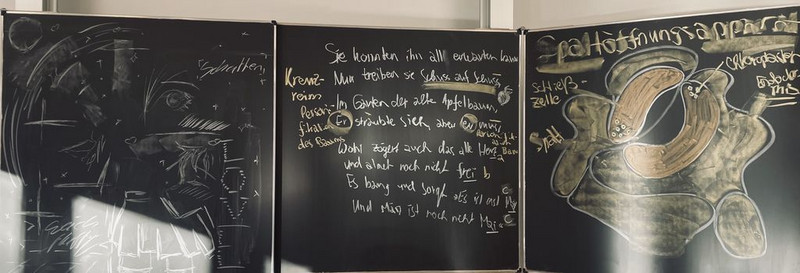 Schatten
Sie konnten ihn all erwarten kaum
Nun treiben sie Schuss auf Schuss
Im Garten der alte Apfelbaum
Er sträubte sich, aber er muss
Wohl zögert auch das alte Herz
und atmet noch nicht frei b
Es bang und sorgt »Es ist erst
Und März ist noch nicht Mai
Kreuz-
reim
Personi-
fikation
des Baums
Spaltöffnungsapparat
Chloroplasten
Schließ-
zelle
Spalt